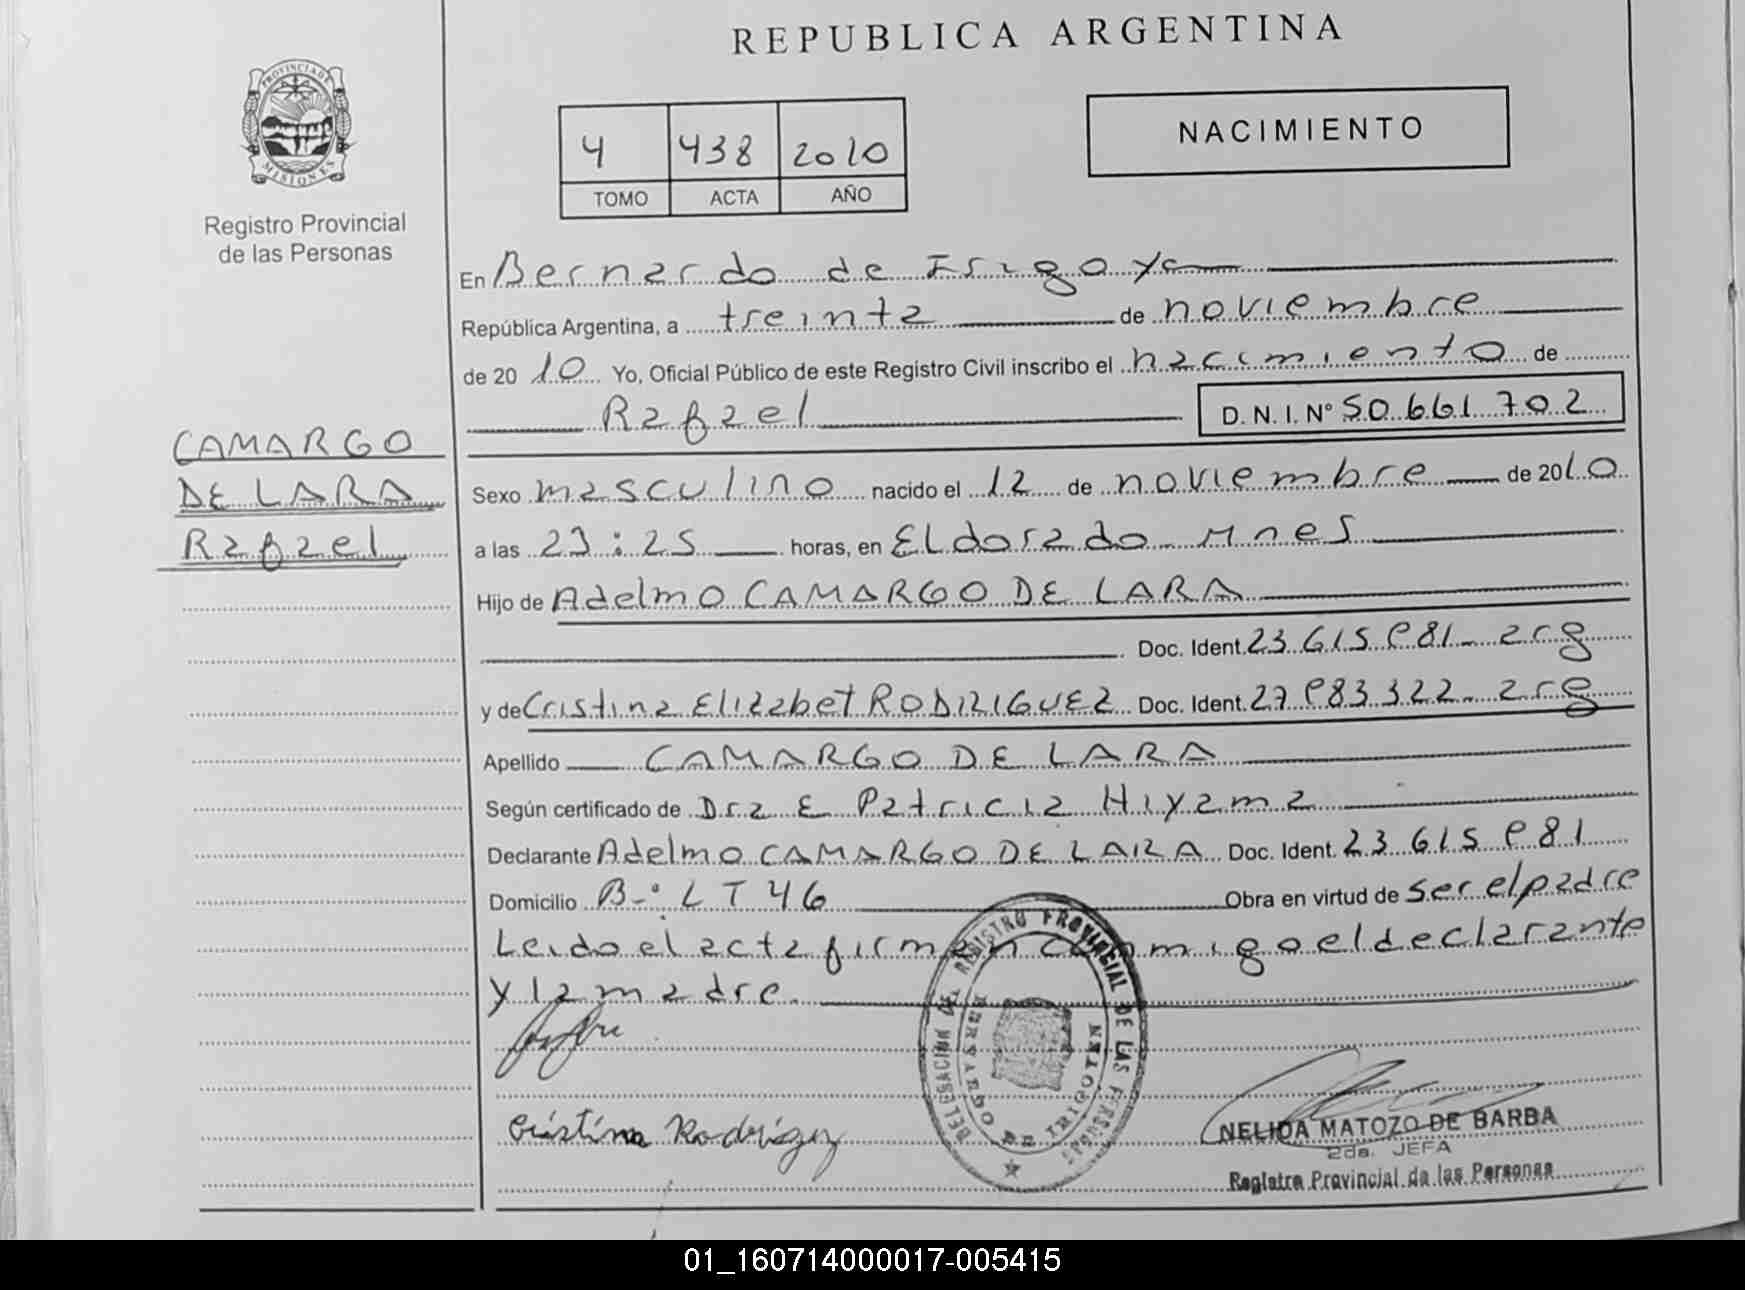 REPUBLICA ARGENTINA
PROVINCIA DE
MISIONES
Registro Provincial
de las Personas
4 438 2010
TOMO ACTA AÑO
NACIMIENTO
En Bernardo de Irigoye
República Argentina, a treinta de noviembre
de 2010 Yo, Oficial Público de este Registro Civil inscribo el nacimiento de
Rafael D. N. I. Nº 50.661.702
CAMARGO
DE LARA
Rafael
Sexo masculino nacido el 12 de noviembre de 2010
a las 23:25 horas, en Eldorado Mnes
Hijo de Adelmo CAMARGO DE LARA
Doc. Ident. 23.615.981- arg
y de Cristina Elizabet RODRIGUEZ Doc. Ident. 27.983.322- arg
Apellido CAMARGO DE LARA
Según certificado de Dra E Patricia Hiyama
Declarante Adelmo CAMARGO DE LARA Doc. Ident. 23 615 981
Domicilio B-: LT 46 Obra en virtud de ser el padre
Leido el acta firman conmigo el declarante
y la madre.
Cristina Rodriguez
DELEGACION DEL REGISTRO PROVINCIAL DE LAS PERSONAS
BERNARDO DE IRIGOYEN
NELIDA MATOZO DE BARBA
2da. JEFA
Registro Provincial de las Personas
01_160714000017-005415